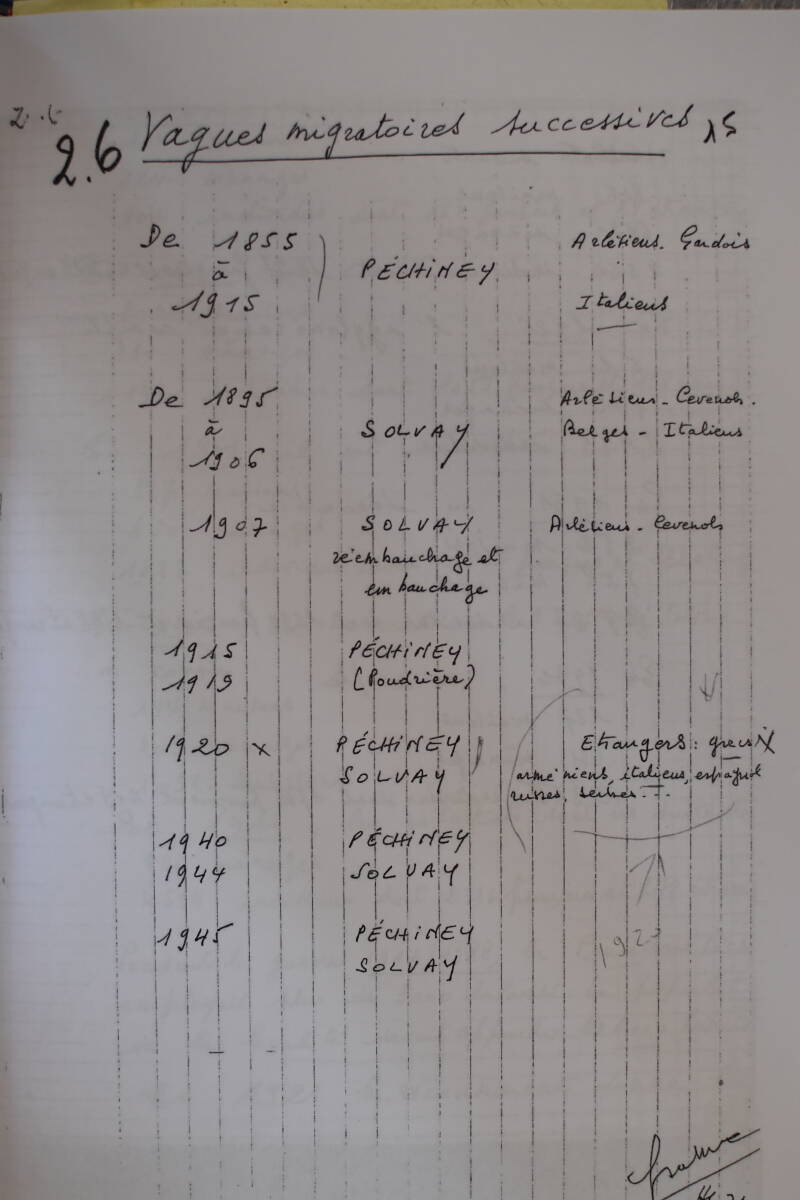 2.6
2.6 Vagues migratoires successives
De 1855 Arlésiens. Gardois
à PÉCHINEY
1915 Italiens
De 1895 Arlésiens - Cevenols.
à SOLVAY Belges - Italiens
1906
1907 SOLVAY Arlésiens - Cevenols
réembauchage et
embauchage
1915 PÉCHINEY
1919 (Poudrière)
1920 x PÉCHINEY Etrangers: grecs x
SOLVAY arméniens, italiens, espagnols
russes, serbes...
1940 PÉCHINEY
1944 SOLVAY
1945 PÉCHINEY
SOLVAY